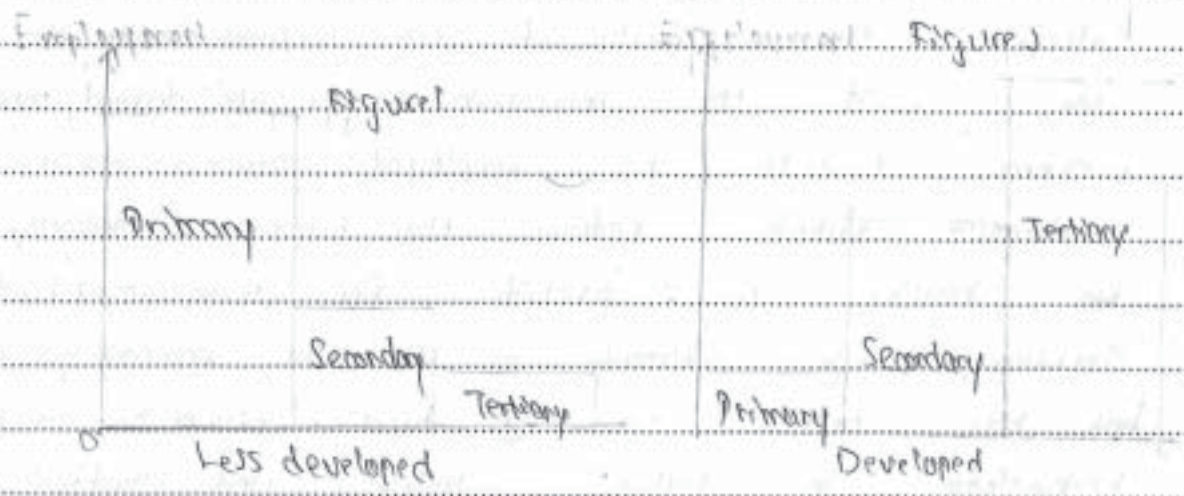 Employment Employment Figure 2
Figure 1
Primary Tertiary
Secondary Secondary
Tertiary Primary
0
Less developed Developed